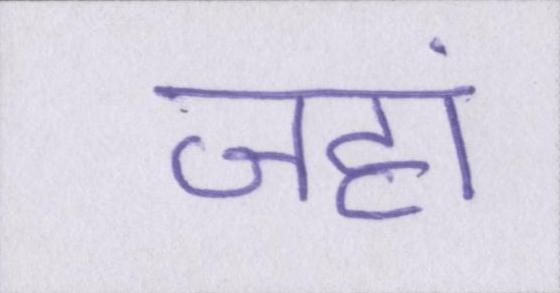 जहां